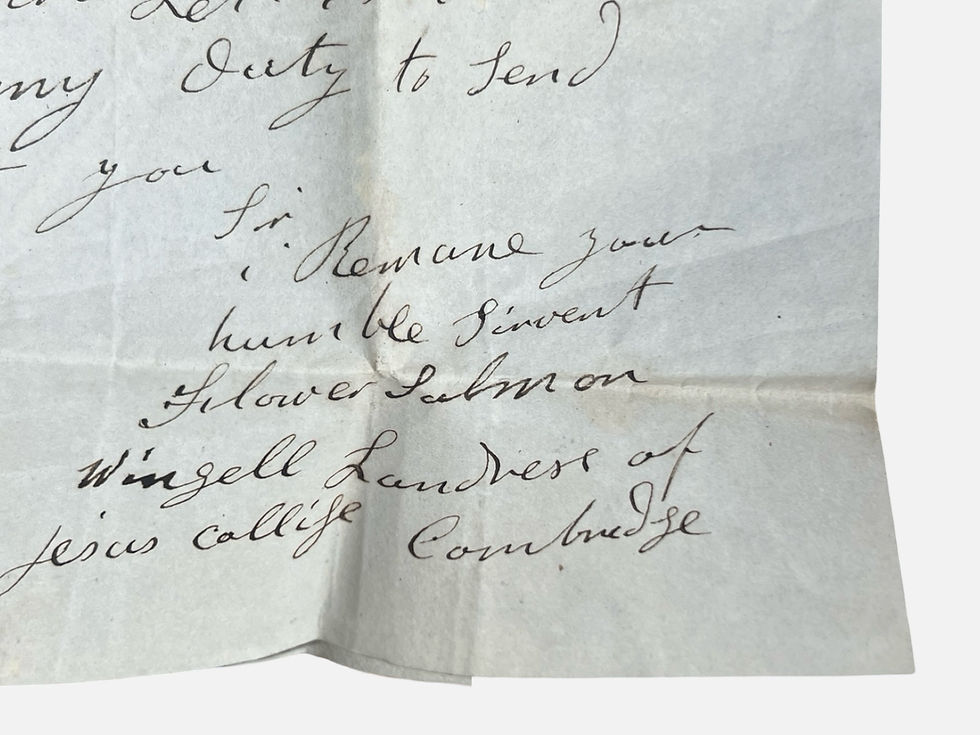 my Duty to Send
you
Sir
i Remane your
humble Sirvent
Flower Salmon
Wingell Landress of
jesus collige Combridge